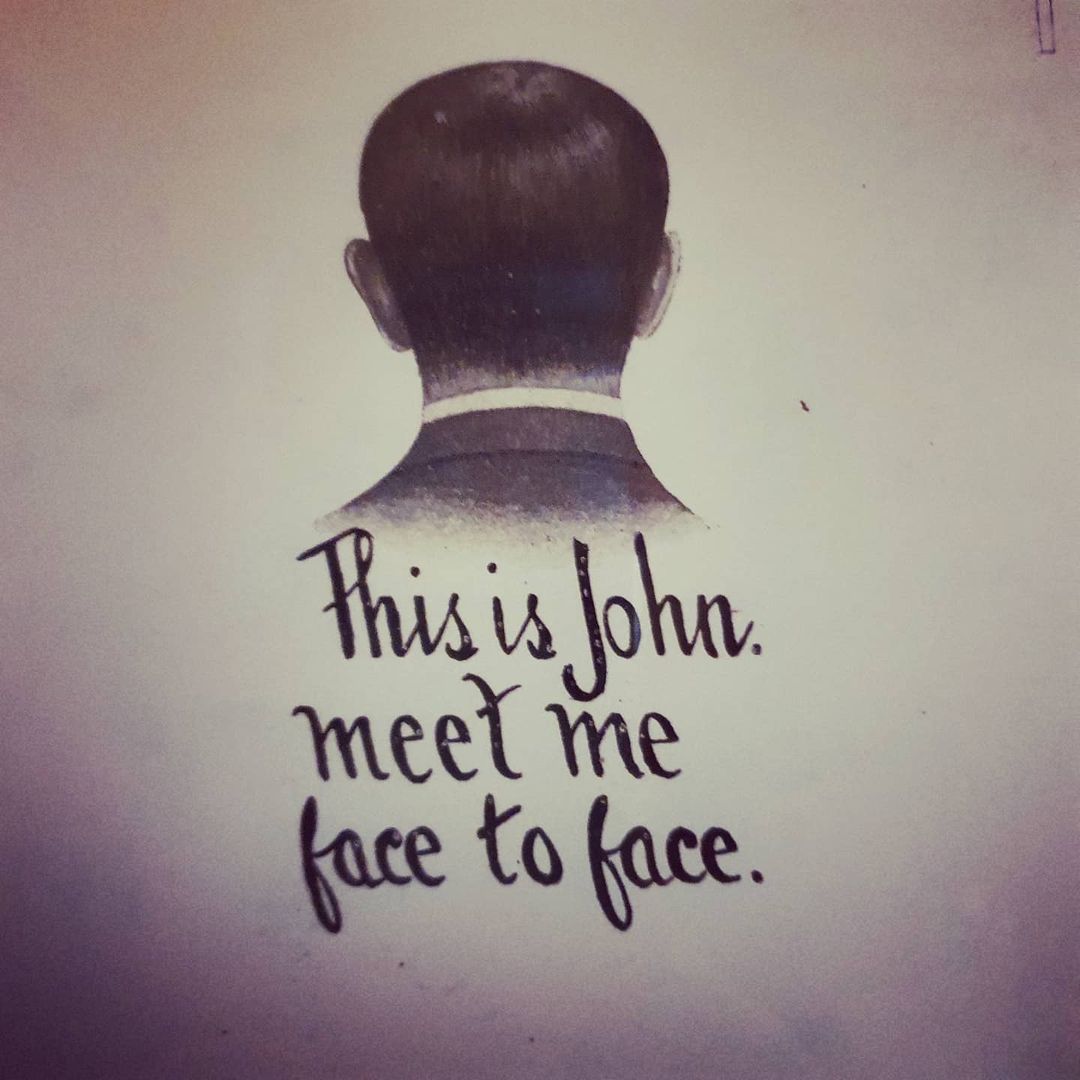 This is John.
meet me
face to face.